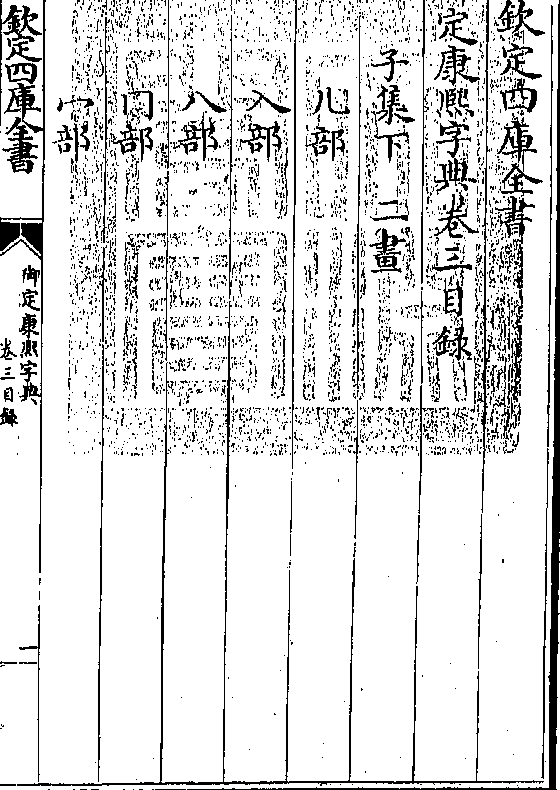 欽定四庫全書
定康熙字典卷三目錄
子集下 二畫
儿部
入部
八部
冂部
冖部
欽定四庫全書
御定康熙字典
卷三目錄
一